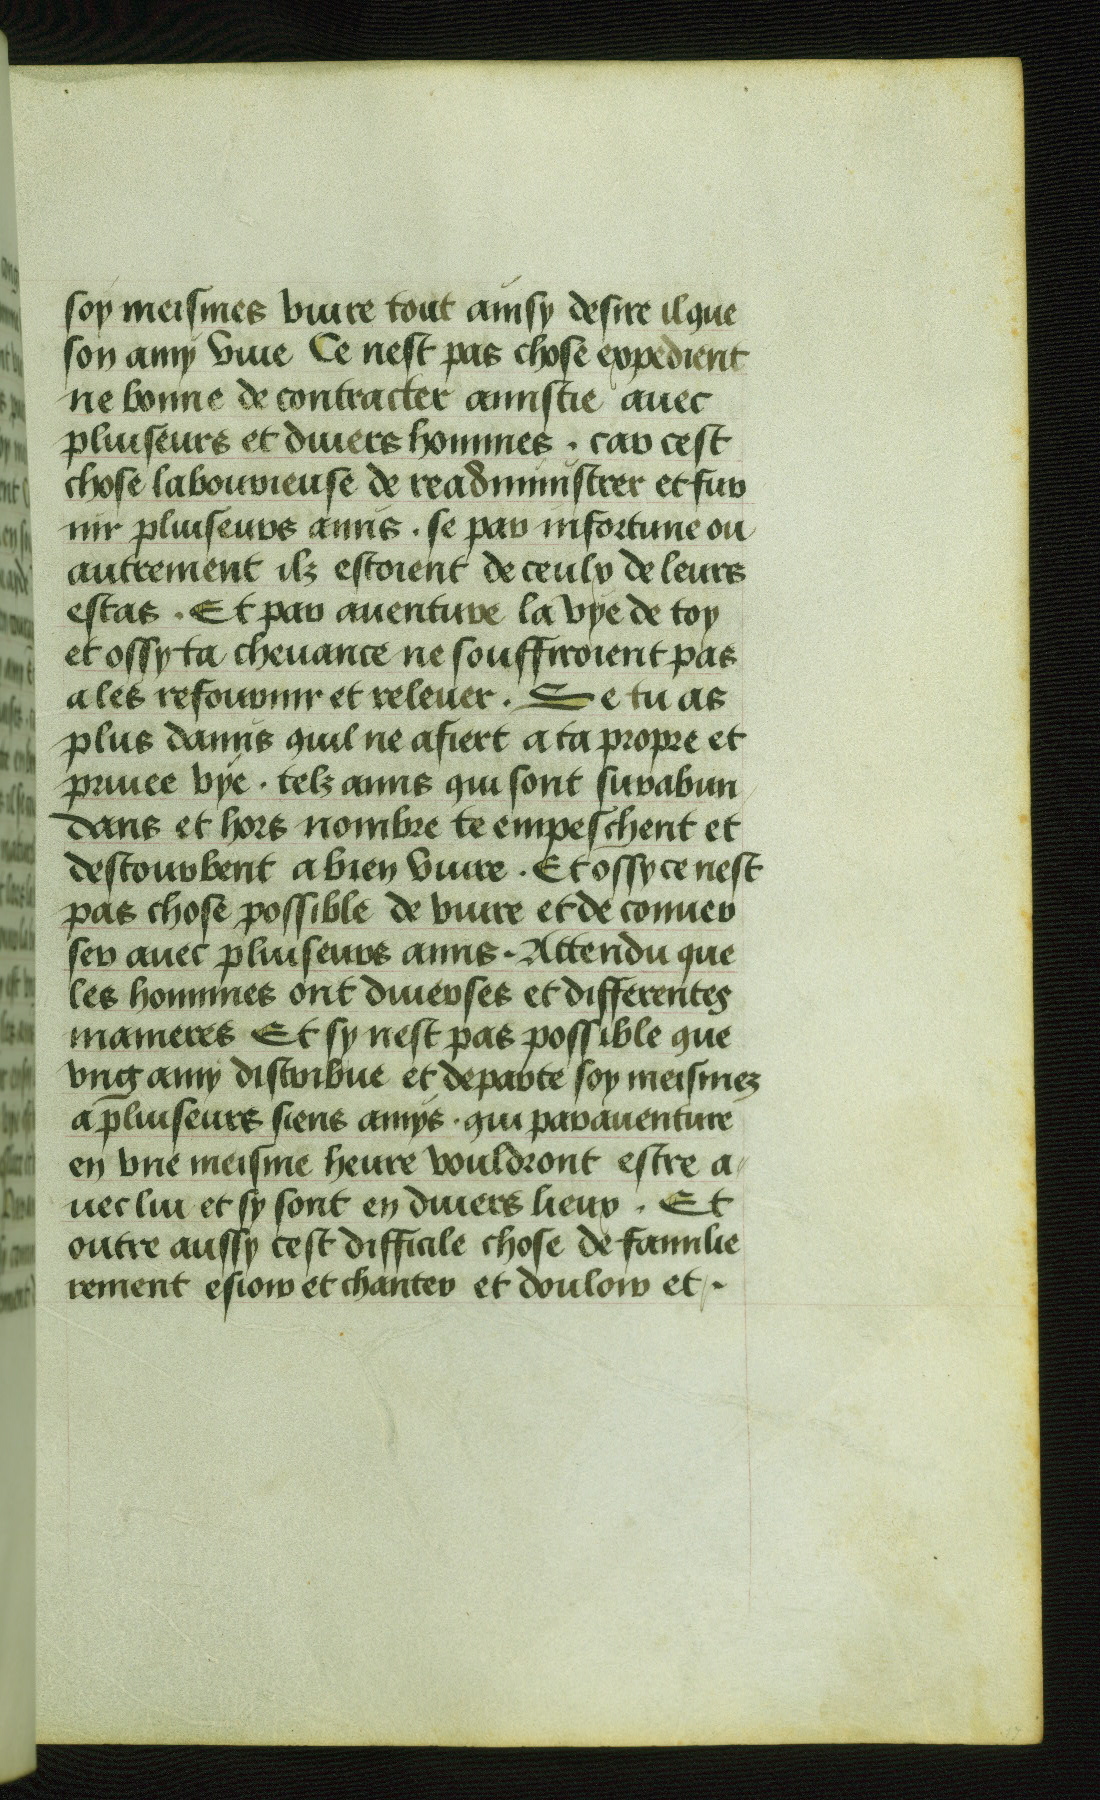 soy meismes viure tout ainsy desire il que
son amy viue Ce nest pas chose expedient
ne bonne de contracter amistie auec
pluiseurs et diuers hommes . car cest
chose labourieuse de readministrer et fur
nir pluiseurs amis . se par infortune ou
autrement ilz estoient de ceulx de leurs
estas . Et par auenture la vye de toy
et ossy ta cheuance ne souffiroient pas
a les refournir et releuer . Se tu as
plus damis quil ne afiert a ta propre et
priuee vye . telz amis qui sont surabun
dans et hors nombre te empeschent et
destourbent a bien viure . Et ossy ce nest
pas chose possible de viure et de conuer
ser auec pluiseurs amis . Attendu que
les hommes ont diuerses et differentes
manieres Et sy nest pas possible que
vng amy distribue et departe soy meismez
a pluiseurs siens amys . qui par auenture
en vne meisme heure vouldront estre a
uec lui et sy sont en diuers lieux . Et
outre aussy cest difficile chose de familie
rement esioir et chanter et douloir et .